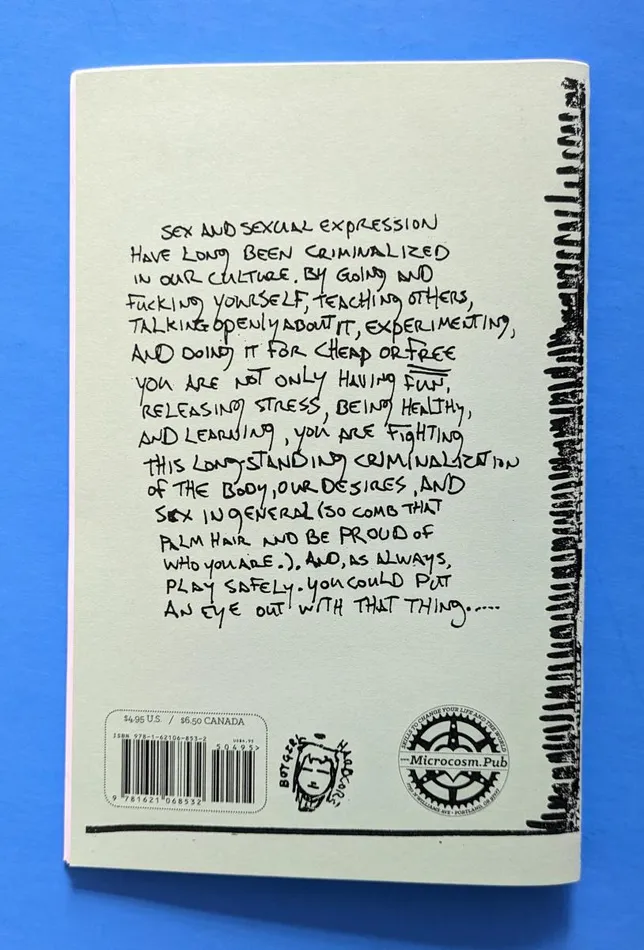 SEX AND SEXUAL EXPRESSION
HAVE LONG BEEN CRIMINALIZED
IN OUR CULTURE. BY GOING AND
FUCKING YOURSELF, TEACHING OTHERS,
TALKING OPENLY ABOUT IT, EXPERIMENTING,
AND DOING IT FOR CHEAP OR FREE
YOU ARE NOT ONLY HAVING FUN,
RELEASING STRESS, BEING HEALTHY,
AND LEARNING, YOU ARE FIGHTING
THIS LONG-STANDING CRIMINALIZATION
OF THE BODY, OUR DESIRES, AND
SEX IN GENERAL (SO COMB THAT
PALM HAIR AND BE PROUD OF
WHO YOU ARE.). AND, AS ALWAYS,
PLAY SAFELY. YOU COULD PUT
AN EYE OUT WITH THAT THING.....
$4.95 U.S. / $6.50 CANADA
ISBN 978-1-62106-853-2
50495>
9 781621 068532
SKILLS TO CHANGE YOUR LIFE AND THE WORLD
Microcosm.Pub
WILLIAMS AVE • PORTLAND, OR